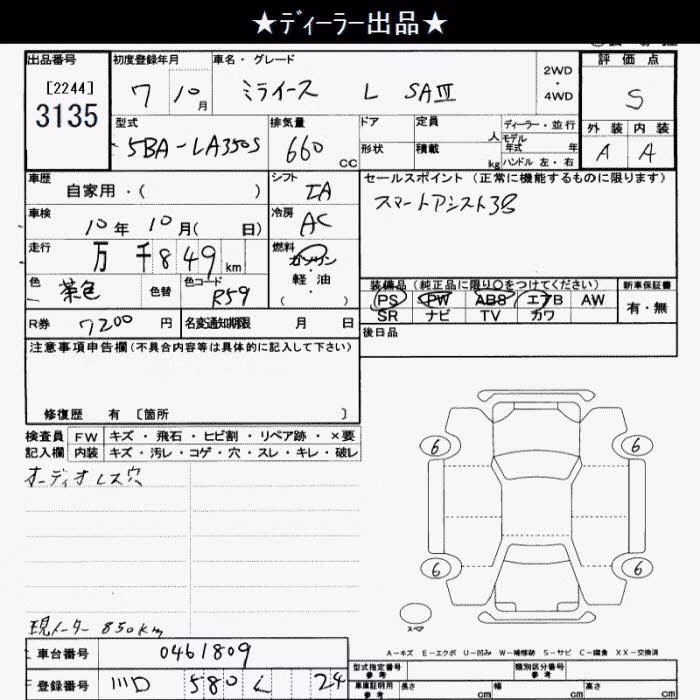 ★ディーラー出品★
出品番号
[2244]
3135
初度登録年月
7 10月
車名・グレード
ミライース L SAⅢ
2WD
・
4WD
評価点
S
型式
5BA-LA350S
排気量
660 CC
ドア
形状
定員 人
積載 kg
ディーラー・並行
モデル
年式 年
ハンドル 左・右
外装 内装
A A
車歴
自家用・( )
シフト
IA
車検
10年 10月( 日)
冷房
AC
走行
万 千849km
燃料
ガソリン
・
軽油
( )
色
茶色
色替
色コード
R59
R券 7200円
名変通知期限 月 日
セールスポイント (正常に機能するものに限ります)
スマートアシスト3B
装備品 (純正品に限り○をつけてください)
PS PW ABS エアB AW
SR ナビ TV カワ
新車保証書
有・無
後日品
注意事項申告欄(不具合内容等は具体的に記入して下さい)
修復歴 有 〔箇所 〕
検査員
記入欄
FW キズ・飛石・ヒビ割・リペア跡・×要
内装 キズ・汚レ・コゲ・穴・スレ・キレ・破レ
オーディオレス穴
現メーター 850km
6 6
6 6
スペア
A-キズ E-エクボ U-凹み W-補修跡 S-サビ C-腐食 XX-交換済
車台番号 0461809
登録番号 川口 580 く 24
型式指定番号
参考
類別区分番号
参考
車庫証明用
参考
長さ cm
幅 cm
高さ cm